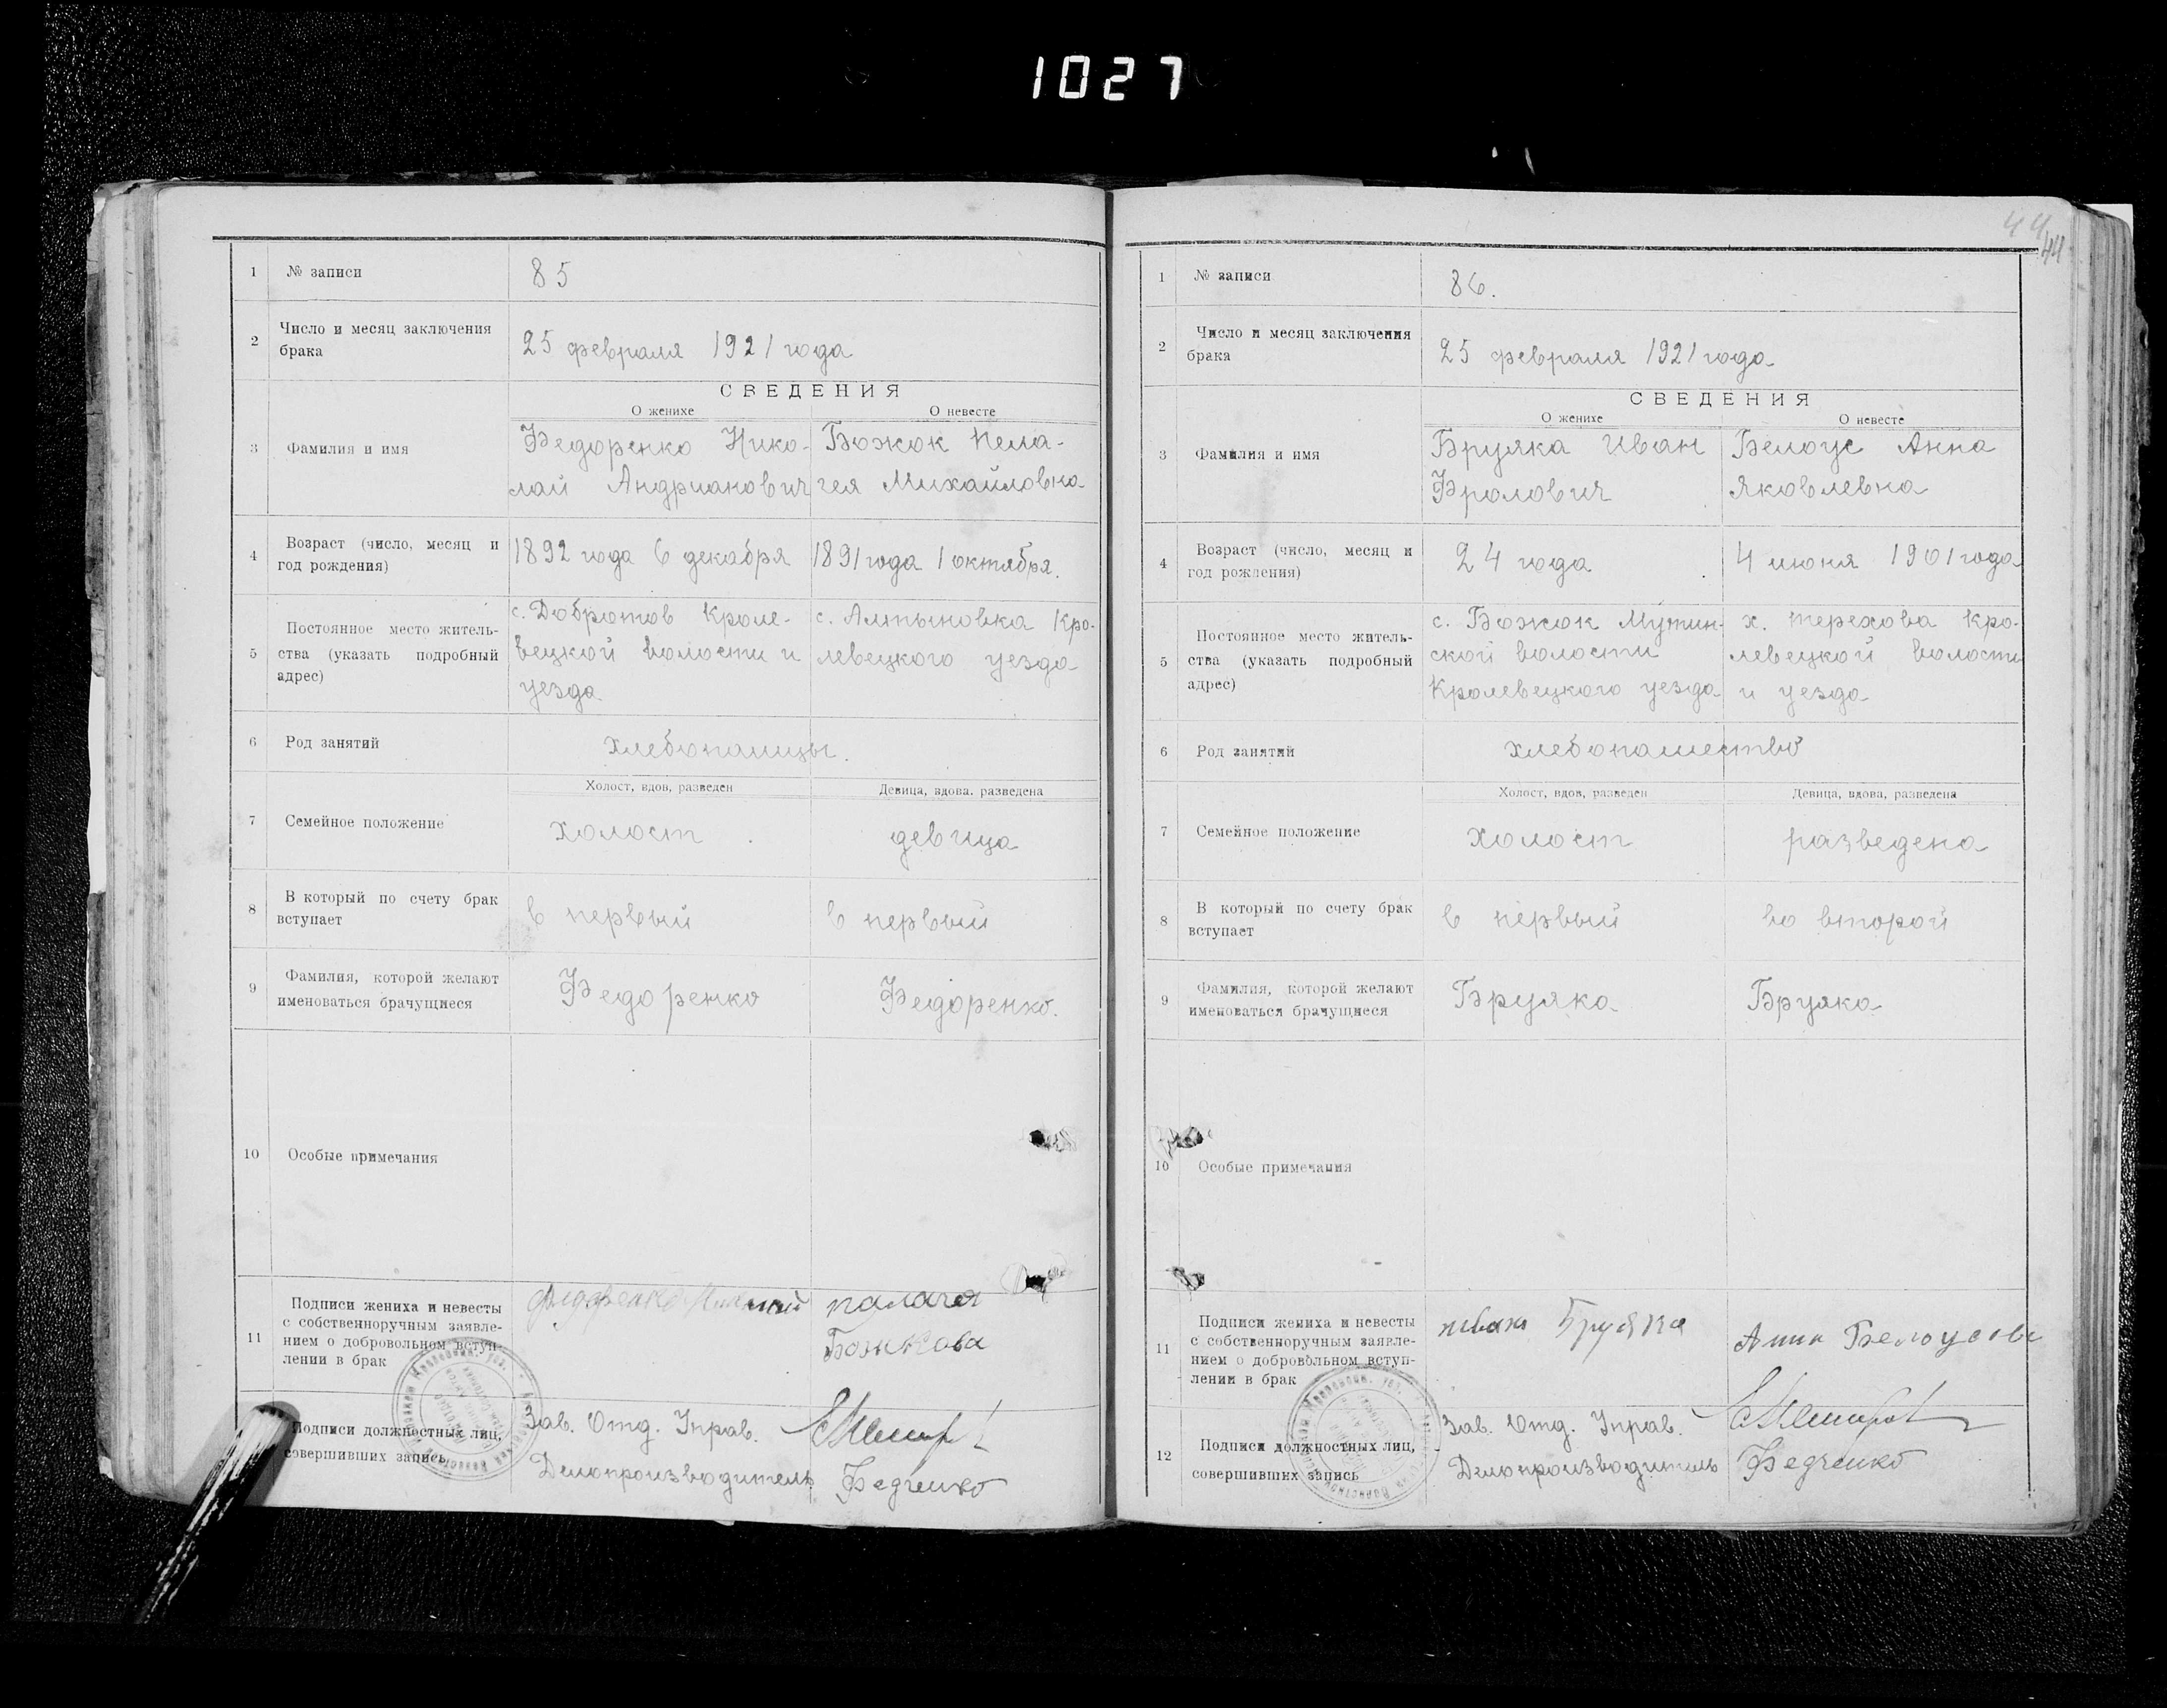 1027
1 № записи 85
2 Число и месяц заключения
брака
25 февраля 1921 года
СВЕДЕНИЯ
О женихе О невесте
3 Фамилия и имя
Федоренко Нико-
лай Андрианович
Божок Пела-
гея Михайловна
4 Возраст (число, месяц и
год рождения)
1892 года 6 декабря
1891 года 1 октября.
5 Постоянное место житель-
ства (указать подробный
адрес)
с. Добротов Кроле-
вецкой волости и
уезда
с. Алтыновка Кро-
левецкого уезда
6 Род занятий
хлебопашцы.
Холост, вдов, разведен Девица, вдова. разведена
7 Семейное положение
холост девица
8 В который по счету брак
вступает
в первый в первый
9 Фамилия, которой желают
именоваться брачущиеся
Федоренко Федоренко.
10 Особые примечания
11 Подписи жениха и невесты
с собственноручным заявле-
нием о добровольном вступ-
лении в брак
палагея
Божкова
Подписи должностных лиц,
совершивших запись
Зав. Отд. Управ.
Делопроизводитель Федченко
44
44
1 № записи 86.
2 Число и месяц заключения
брака
25 февраля 1921 года
СВЕДЕНИЯ
О женихе О невесте
3 Фамилия и имя
Бруяка Иван
Фролович
Белоус Анна
Яковлевна
4 Возраст (число, месяц и
год рождения)
24 года
4 июня 1901 года
5 Постоянное место житель-
ства (указать подробный
адрес)
с. Божок Мутин-
ской волости
Кролевецкого уезда
х. Терехова Кро-
левецкой волости
и уезда
6 Род занятий
хлебопашество
Холост, вдов, разведен Девица, вдова, разведена
7 Семейное положение
холост разведена
8 В который по счету брак
вступает
в первый во второй
9 Фамилия, которой желают
именоваться брачущиеся
Бруяка Бруяка
10 Особые примечания
11 Подписи жениха и невесты
с собственноручным заявле-
нием о добровольном вступ-
лении в брак
Бруяка
Анна Белоусова
12 Подписи должностных лиц,
совершивших запись
Зав. Отд. Управ.
Делопроизводитель Федченко